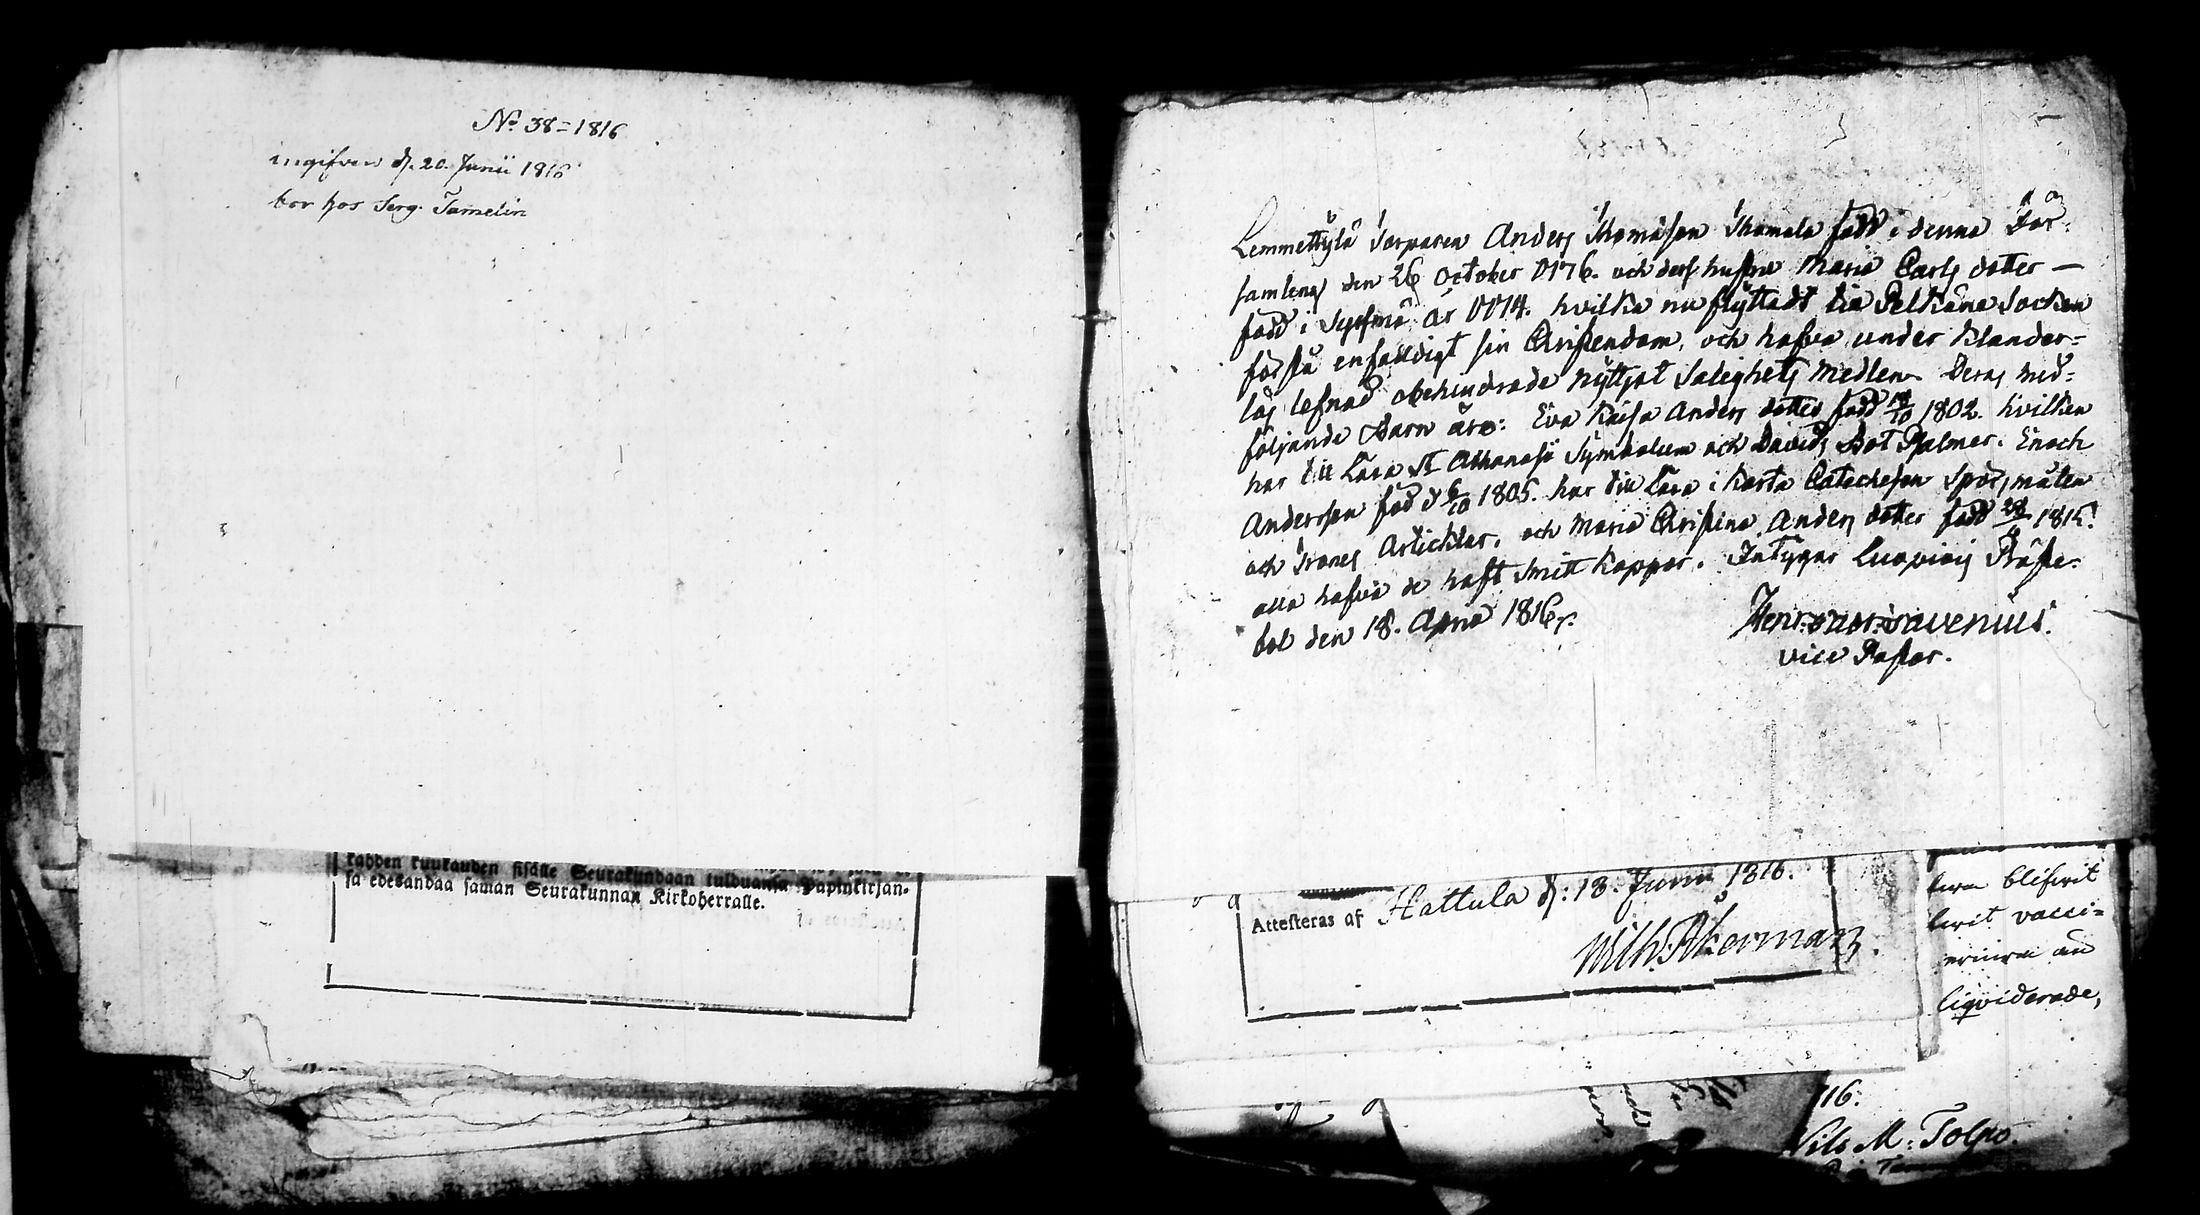 No 38=1816
ingifven d. 20. Junii 1816
bor hos Serg. Tamelin
kahden kuukauden sisälle Seurakundaan tulduansa Papinkirjan-
sa edesandaa saman Seurakunnan Kirkoherralle.
Lemmettylä Torparen Anders Thomasson Thomala född i denna För-
samling den 26 October 1776. och dess hustru Maria Carls dotter —
född i Sysmä år 1774. hvilka nu flyttadt til Pelkäne Socken
förstå enfaldigt sin Christendom, och hafva under klander-
lös lefnad obehindrade nyttjat Salighets medlen. Deras med-
följande Barn äro: Eva Kaisa Anders dotter född 1802. hvilken
har till Lära St Athanasii Symbolum och Davids Bot Psalmer. Enoch
Andersson född 6/10 1805. har till Lära i korta Catechesen Spörsmålen
och Trones Articklar. och Maria Christina Anders dotter född 1815.
alla hafva de haft Smitt koppor. Intygar Luopiois Präste-
bol den 18. April 1816.
Henr. Savenius.
vice Pastor.
Attesteras af Hattula d: 18. Junii 1816.
Wilh. Åkerman.
blifvit
vacci=
liqviderade,
16.
Nils M: Tolpo.